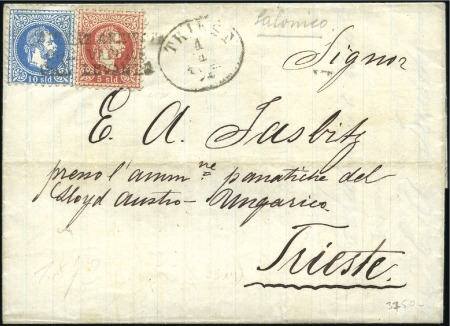 Salonico
10 sld
5 sld
TRIEST
Signor
E. A. Jasbitz
presso l'amm.ne panatiche del
Lloyd Austro-Ungarico
Trieste.